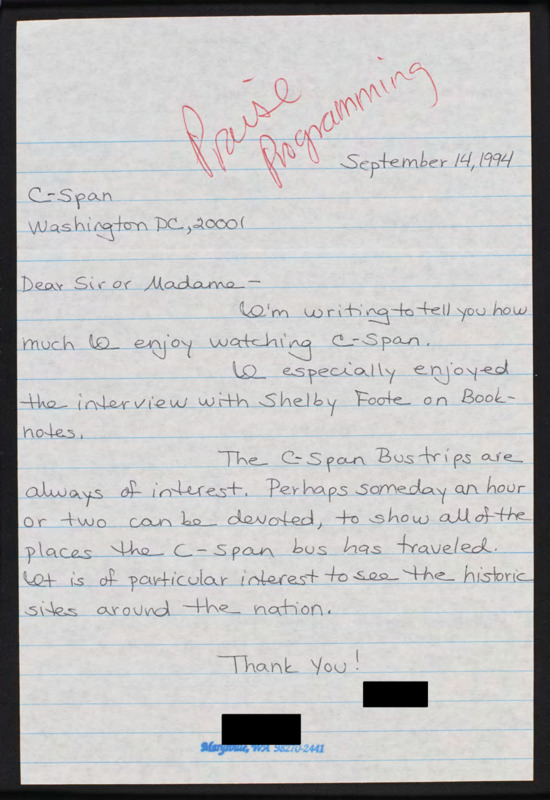 Praise
Programming
September 14, 1994
C-Span
Washington DC, 20001
Dear Sir or Madame -
I'm writing to tell you how
much I enjoy watching C-Span.
I especially enjoyed
the interview with Shelby Foote on Book-
notes.
The C-Span Bus trips are
always of interest. Perhaps someday an hour
or two can be devoted, to show all of the
places the C-Span bus has traveled.
It is of particular interest to see the historic
sites around the nation.
Thank You!
Marysville, WA 98270-2441